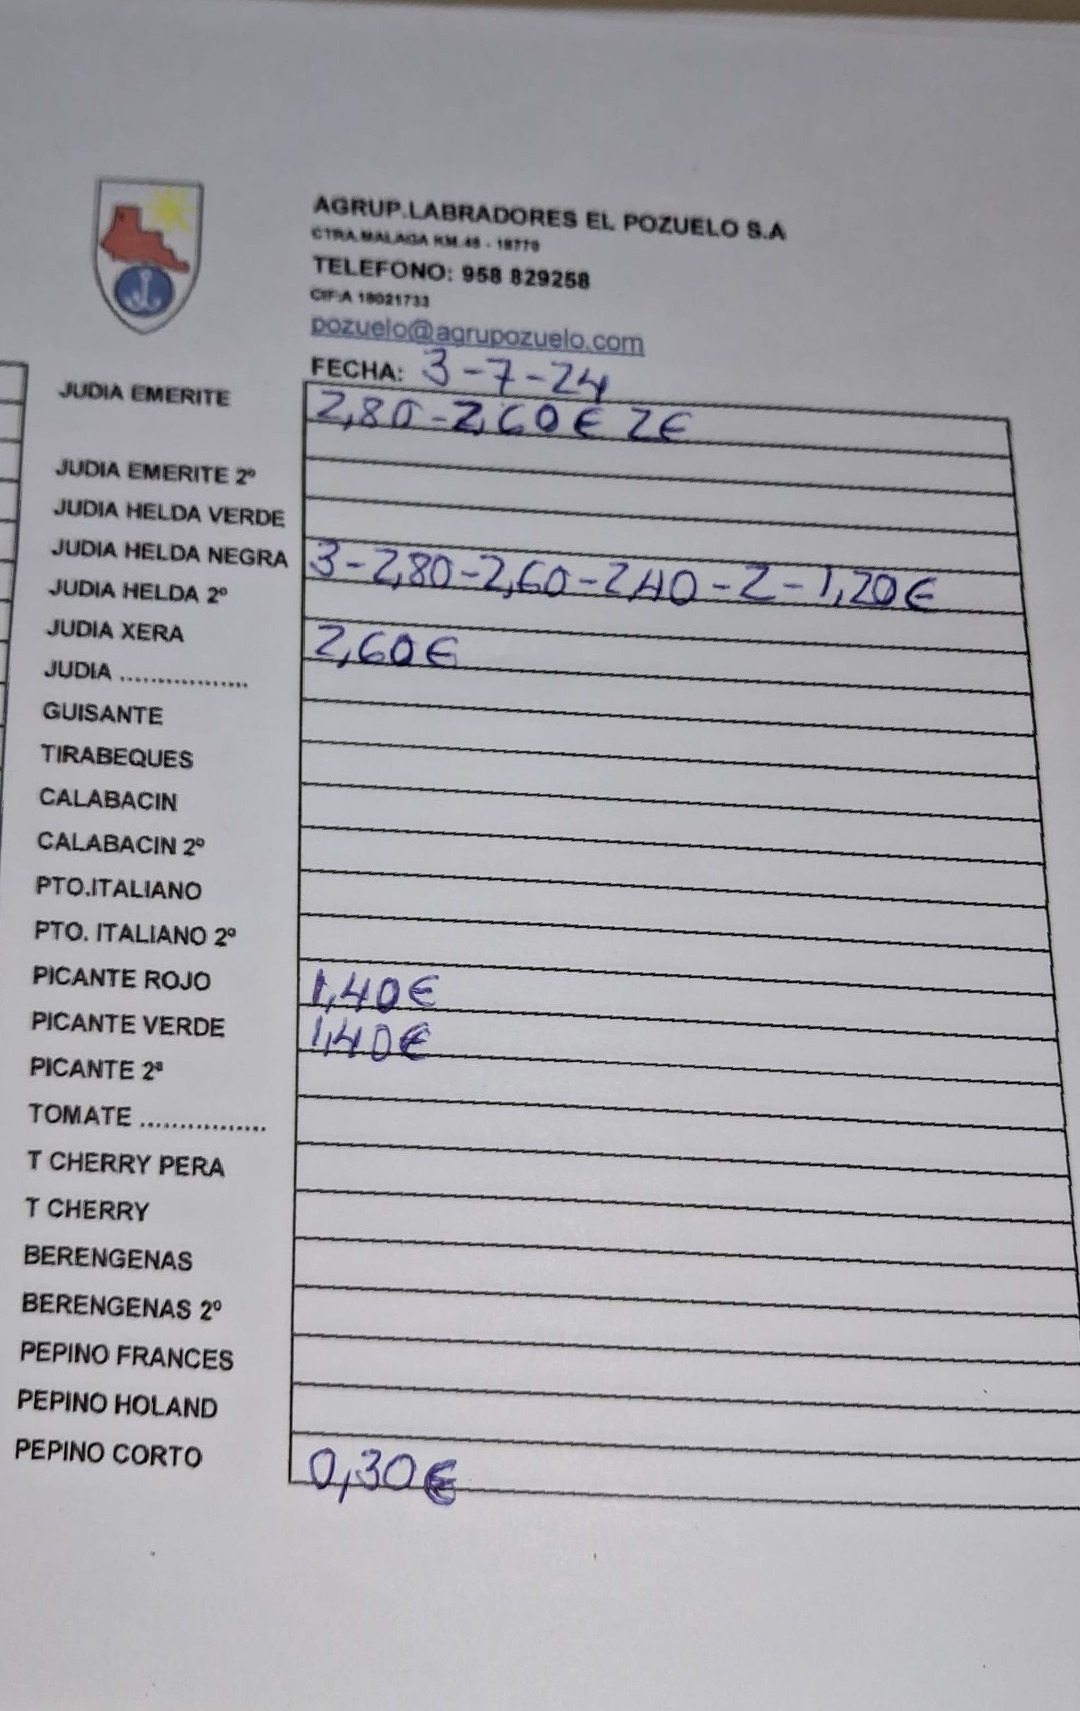 AGRUP.LABRADORES EL POZUELO S.A
CTRA.MALAGA KM.45 - 18770
TELEFONO: 958 829258
CIF:A 18021733
pozuelo@agrupozuelo.com
FECHA: 3-7-24
JUDIA EMERITE 2,80-2,60€ 2€
JUDIA EMERITE 2º
JUDIA HELDA VERDE
JUDIA HELDA NEGRA 3-2,80-2,60-2,40-2-1,20€
JUDIA HELDA 2º
JUDIA XERA 2,60€
JUDIA .................
GUISANTE
TIRABEQUES
CALABACIN
CALABACIN 2º
PTO.ITALIANO
PTO. ITALIANO 2º
PICANTE ROJO 1,40€
PICANTE VERDE 1,40€
PICANTE 2ª
TOMATE ................
T CHERRY PERA
T CHERRY
BERENGENAS
BERENGENAS 2º
PEPINO FRANCES
PEPINO HOLAND
PEPINO CORTO 0,30€